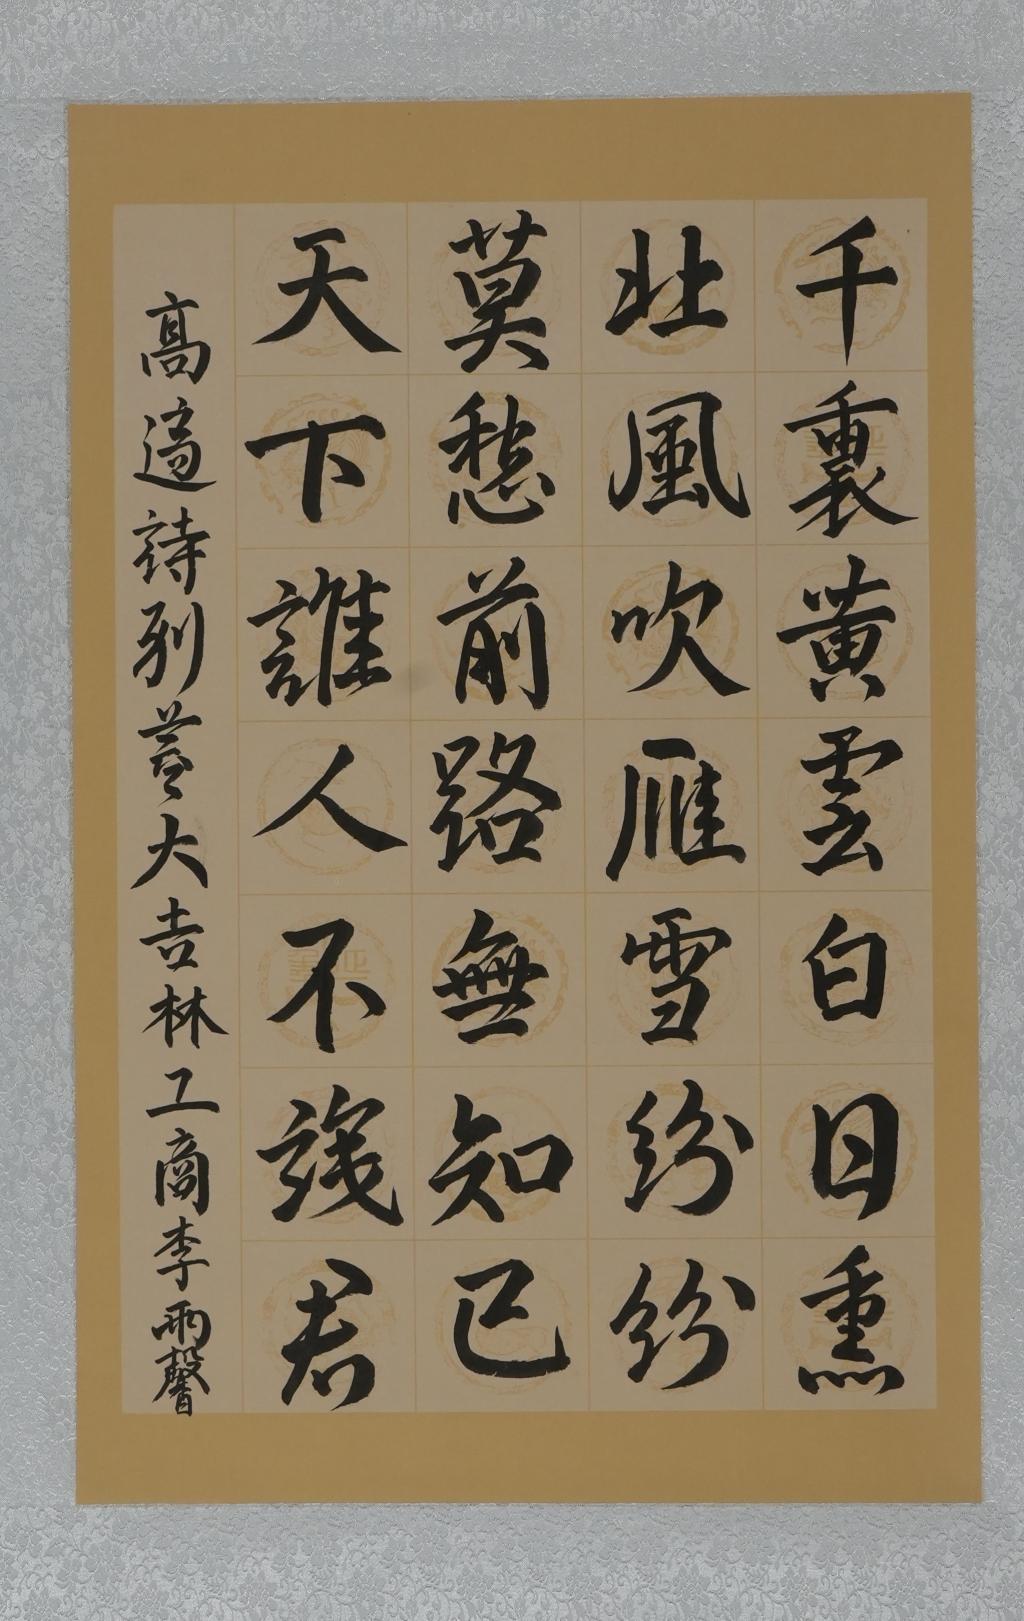 千裏黄雲白日熏
北風吹雁雪紛紛
莫愁前路無知己
天下誰人不識君
高適詩別董大吉林工商李雨馨